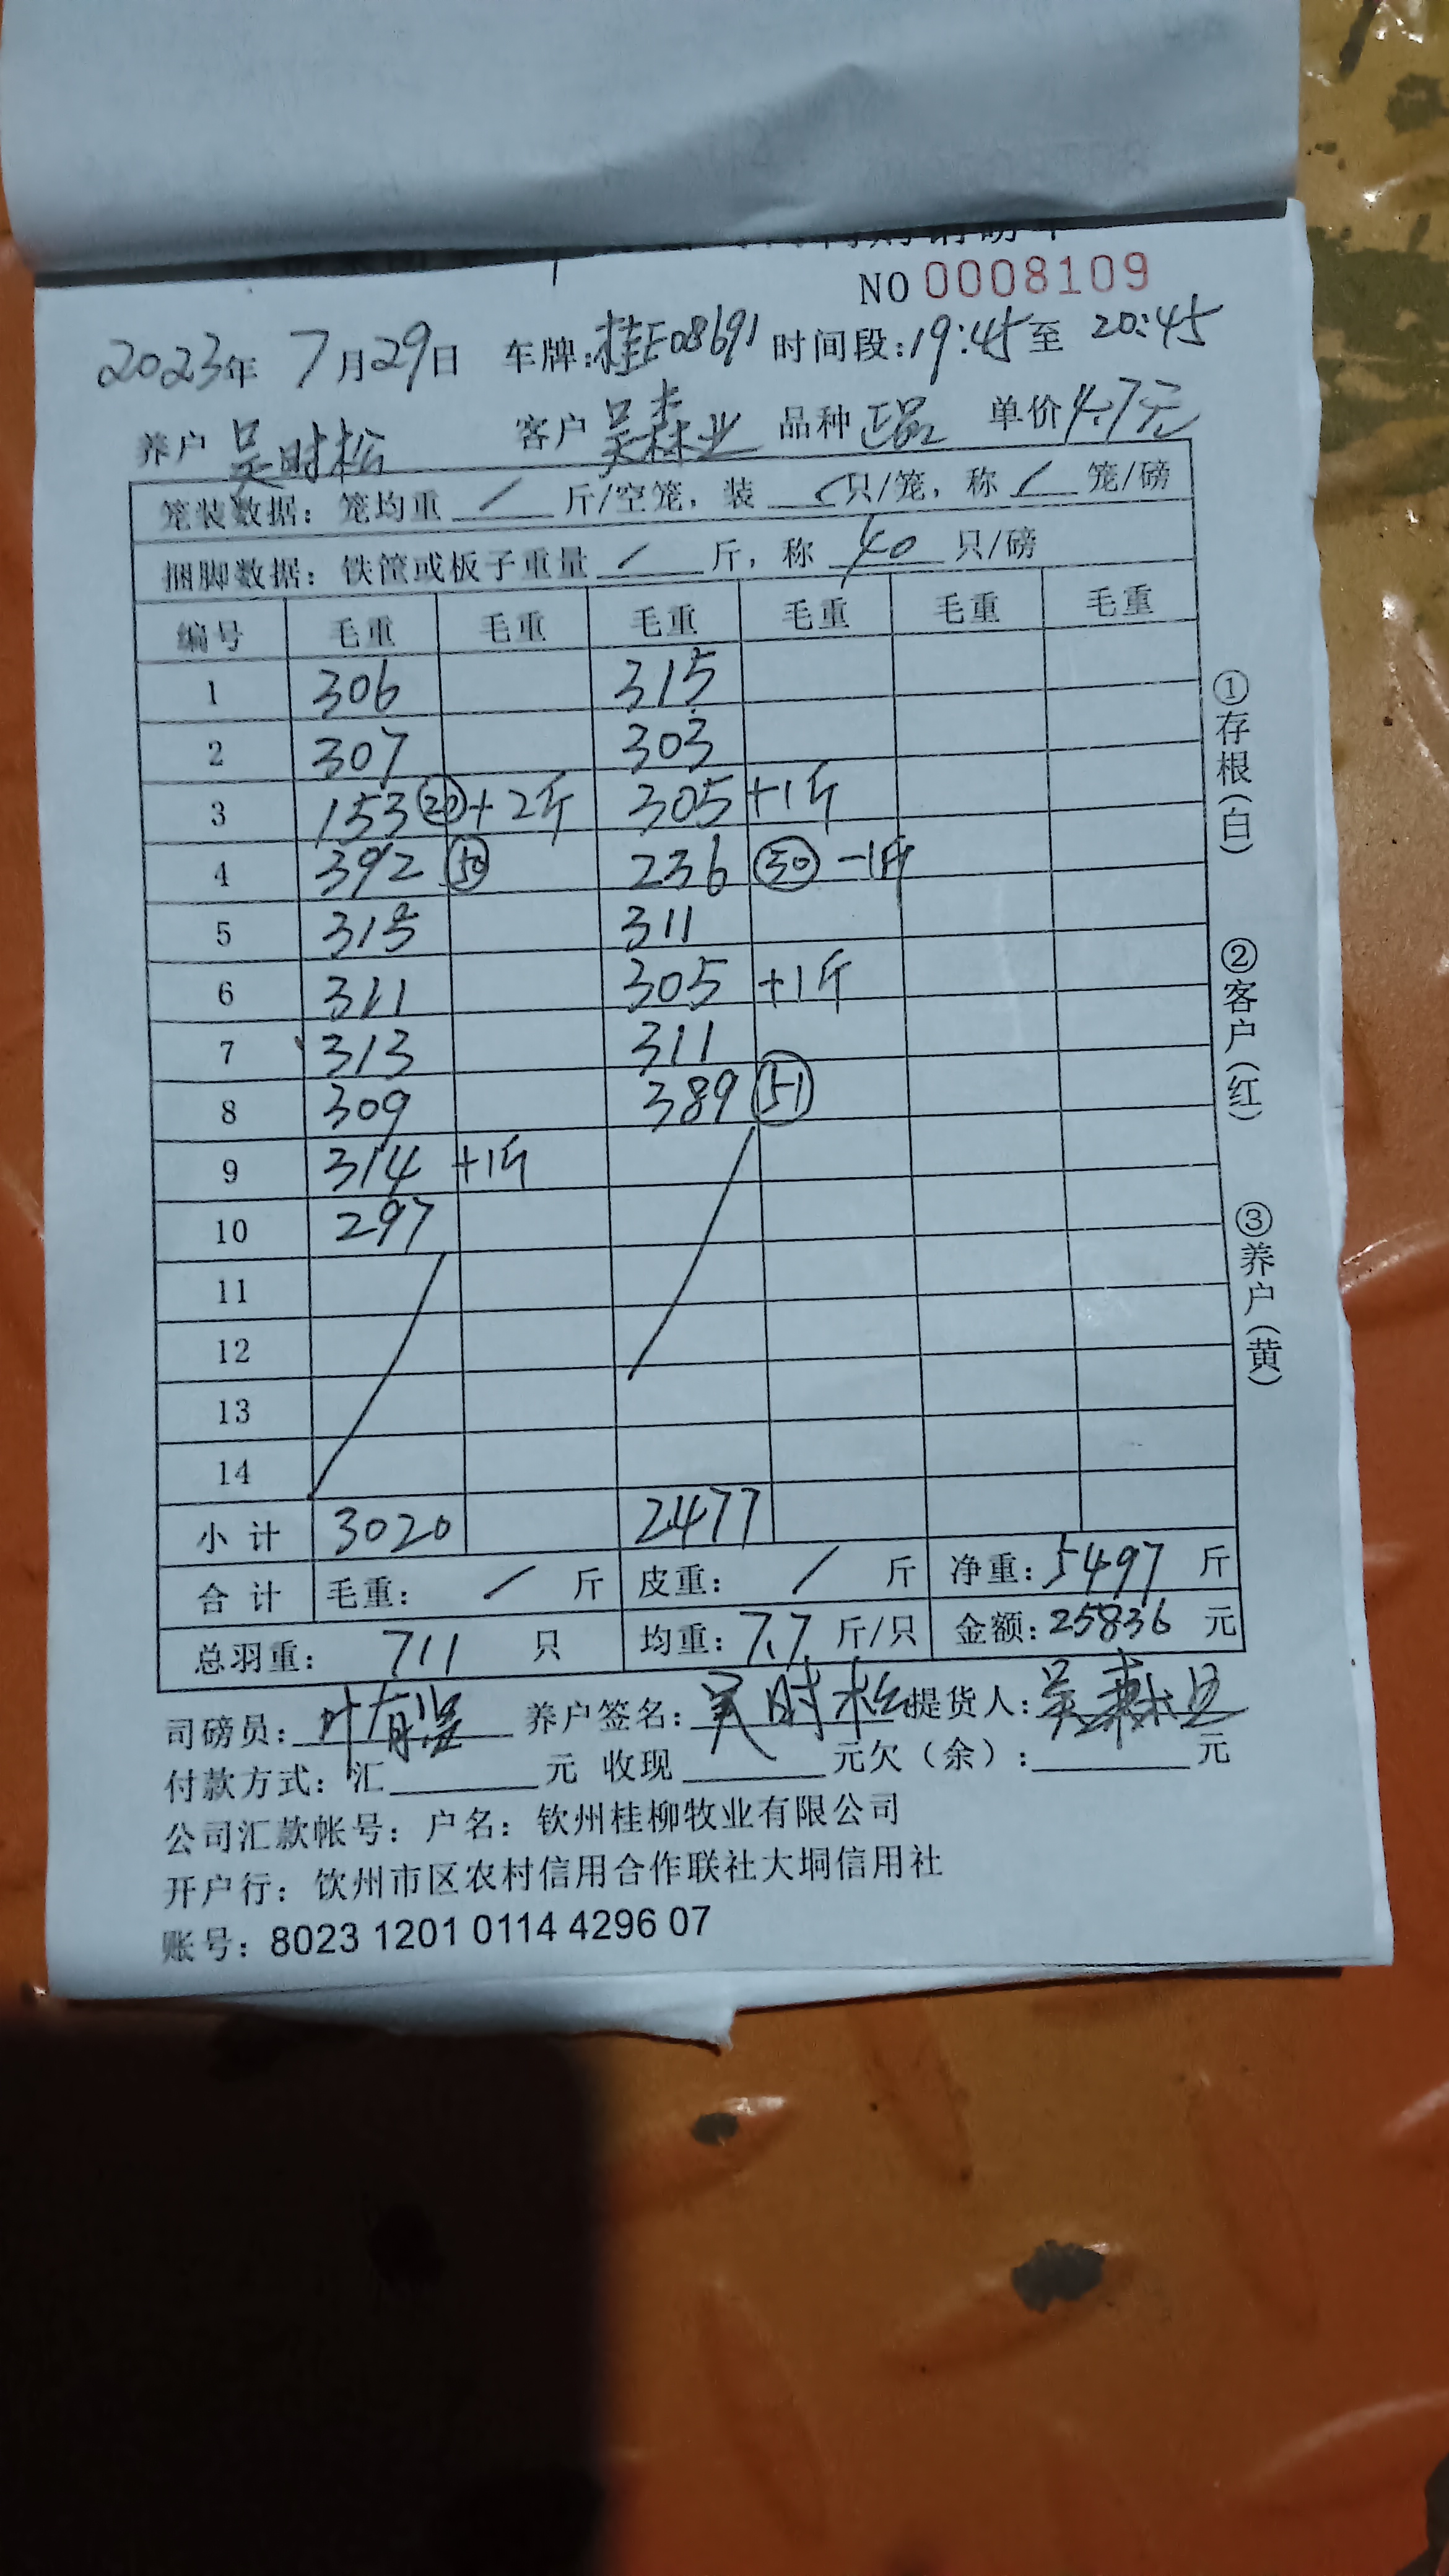 NO 0008109
2023年 7月29日 车牌:桂E08691 时间段:19:45至 20:45
养户 吴时松 客户 吴森业 品种 正品 单价 4.7元
笼装数据: 笼均重 / 斤/空笼, 装 / 只/笼, 称 / 笼/磅
捆脚数据: 铁筐或板子重量 / 斤, 称 40 只/磅
编号 毛重 毛重 毛重 毛重 毛重 毛重
1 306 315
2 307 303
3 153 ⑳ +2斤 305 +1斤
4 392 ㊿ 236 ㉚ -1斤
5 315 311
6 311 305 +1斤
7 313 311
8 309 389 (51)
9 314 +1斤
10 297
11
12
13
14
小计 3020 2477
合计 毛重: / 斤 皮重: / 斤 净重: 5497 斤
总羽重: 711 只 均重: 7.7 斤/只 金额: 25836 元
司磅员: 叶有 养户签名: 吴时松 提货人: 吴森业
付款方式: 汇 元 收现 元欠(余): 元
公司汇款帐号: 户名: 钦州桂柳牧业有限公司
开户行: 饮州市区农村信用合作联社大垌信用社
账号: 8023 1201 0114 4296 07
①存根(白)
②客户(红)
③养户(黄)